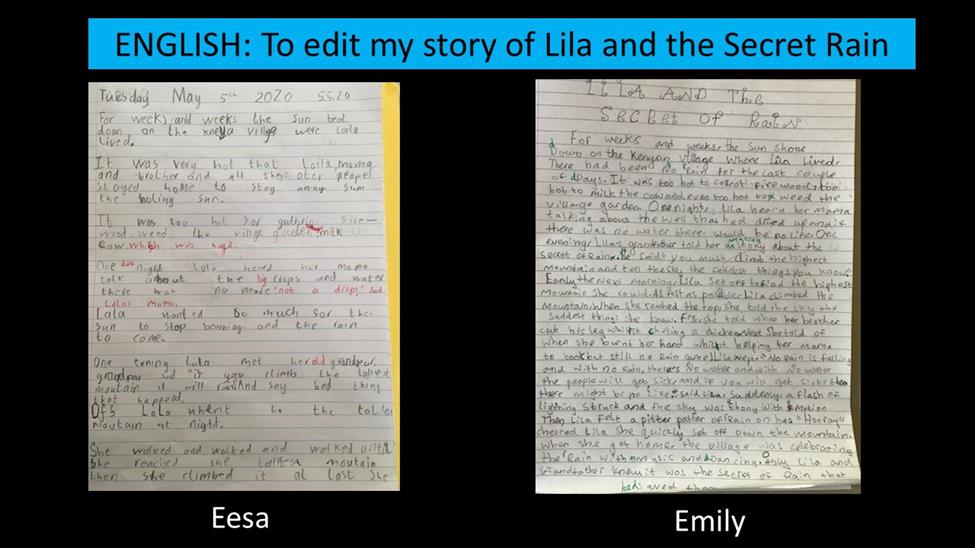 ENGLISH: To edit my story of Lila and the Secret Rain
Tuesday May 5th 2020 5.5.20
For weeks and weeks the sun beat
down on the kneya village were Laila
lived.
It was very hot that Laila, mama
and brother and all the oter peopel
stayed home to stay away
the boiling sun.
It was too hot for
wood weed the village garden milk
cow.which was huge.
One night Lala heard her mama
talk about the crops and water
there was no more "not a drop," said
Lalas mama.
Lala wanted so much for the
sun to stop beaming and the rain
to come.
One Lala met her old grandpar.
grandpar sed "if you climb the tallest
moutain it will rain And say bad thing
that happend.
Of Lala whent to the
moutain at night.
She walked and walked and walked until
She reached the tallest moutain
then she climbed it at last she
LILA AND The
SECRET OF RAIN
For weeks and weeks the Sun shone
Down on the Kenyan village where Lila Lived.
There had been No Rain for the last couple
of Days. It was too hot to collect firewood, too
hot to milk the cow and even too hot to weed the
village garden. One night, Lila heard her Mama
talking about the well that had dried up and if
there was no water there would be no life. One
evening, Lila's grandfather told her story about the
secret of rain. said "you must climb the highest
Mountain and tell the sky the saddest things you know."
Early the Next Morning, Lila Set off to find the highest
Mountain she could. As fast as Lila climbed the
Mountain. When she reached the top, she told the sky the
Saddest things she knew. told her brother
cut his leg whilst chasing a chicken. Next She told of
when she burnt her hand whilst helping her Mama
to cook but still no Rain came! Lila wept. "No Rain is falling
and with No Rain, there's No water and with No water
the people will get Sick, and if you will get Sick then
there might be no Life," said Lila. Suddenly, a flash of
lightning struck and the sky was Stony with Emotion
Then Lila felt a pitter patter of Rain on her "Hooray"
cheered Lila She quickly set off down the mountain.
When she got home, the village was celebrating
the Rain with music and Dancing. Only Lila and
Grandfather knew it was the secret of Rain that
had saved them
Eesa
Emily